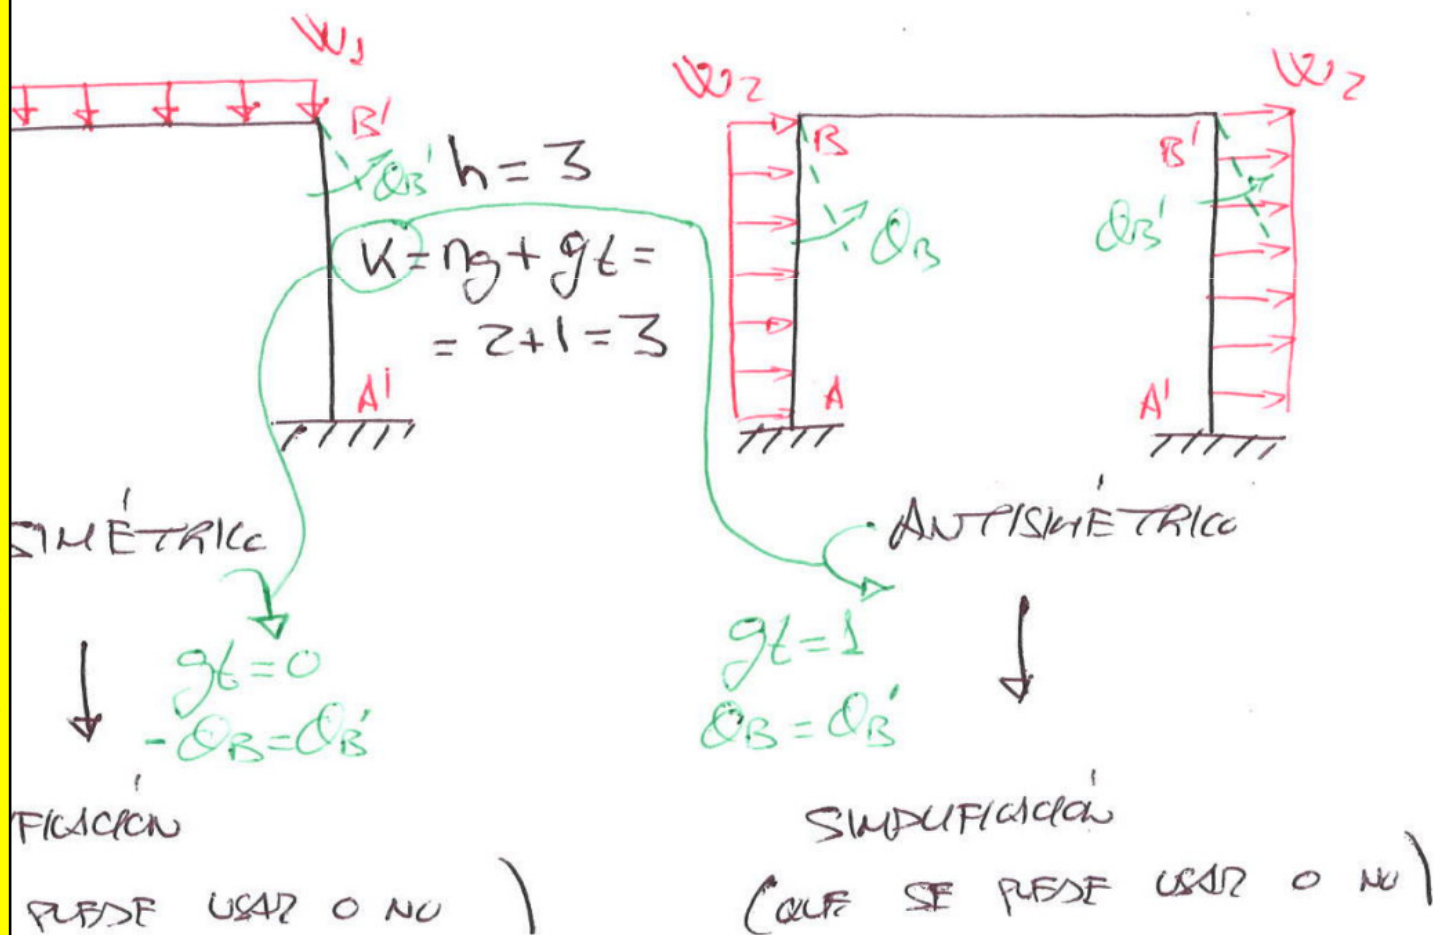 W1
B'
θB'
h = 3
K = ng + gt =
= 2+1 = 3
A'
SIMÉTRICO
gt = 0
-θB = θB'
FICACIÓN
PUEDE USAR O NO )
W2
W2
B
B'
θB
θB'
A
A'
ANTISIMÉTRICO
gt = 1
θB = θB'
SIMPLIFICACIÓN
(QUE SE PUEDE USAR O NO)